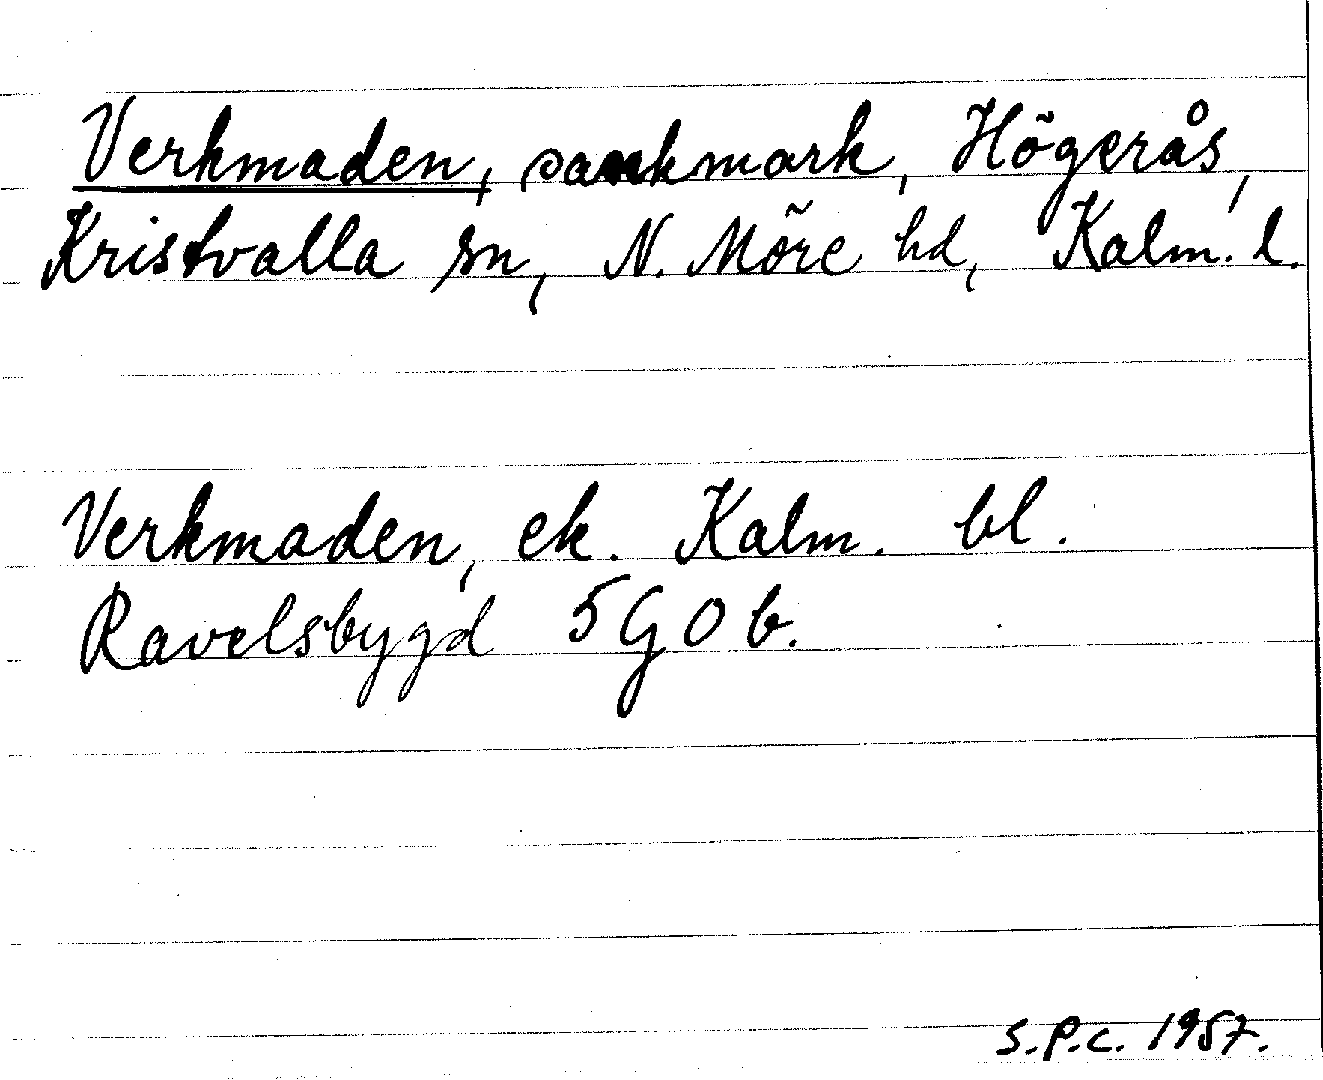 Verkmaden, sankmark, Högerås,
Kristvalla sn, N. Möre hd, Kalm. l.
Verkmaden, ek. Kalm. bl.
Ravelsbygd 5G0b.
S.P.C. 1957.